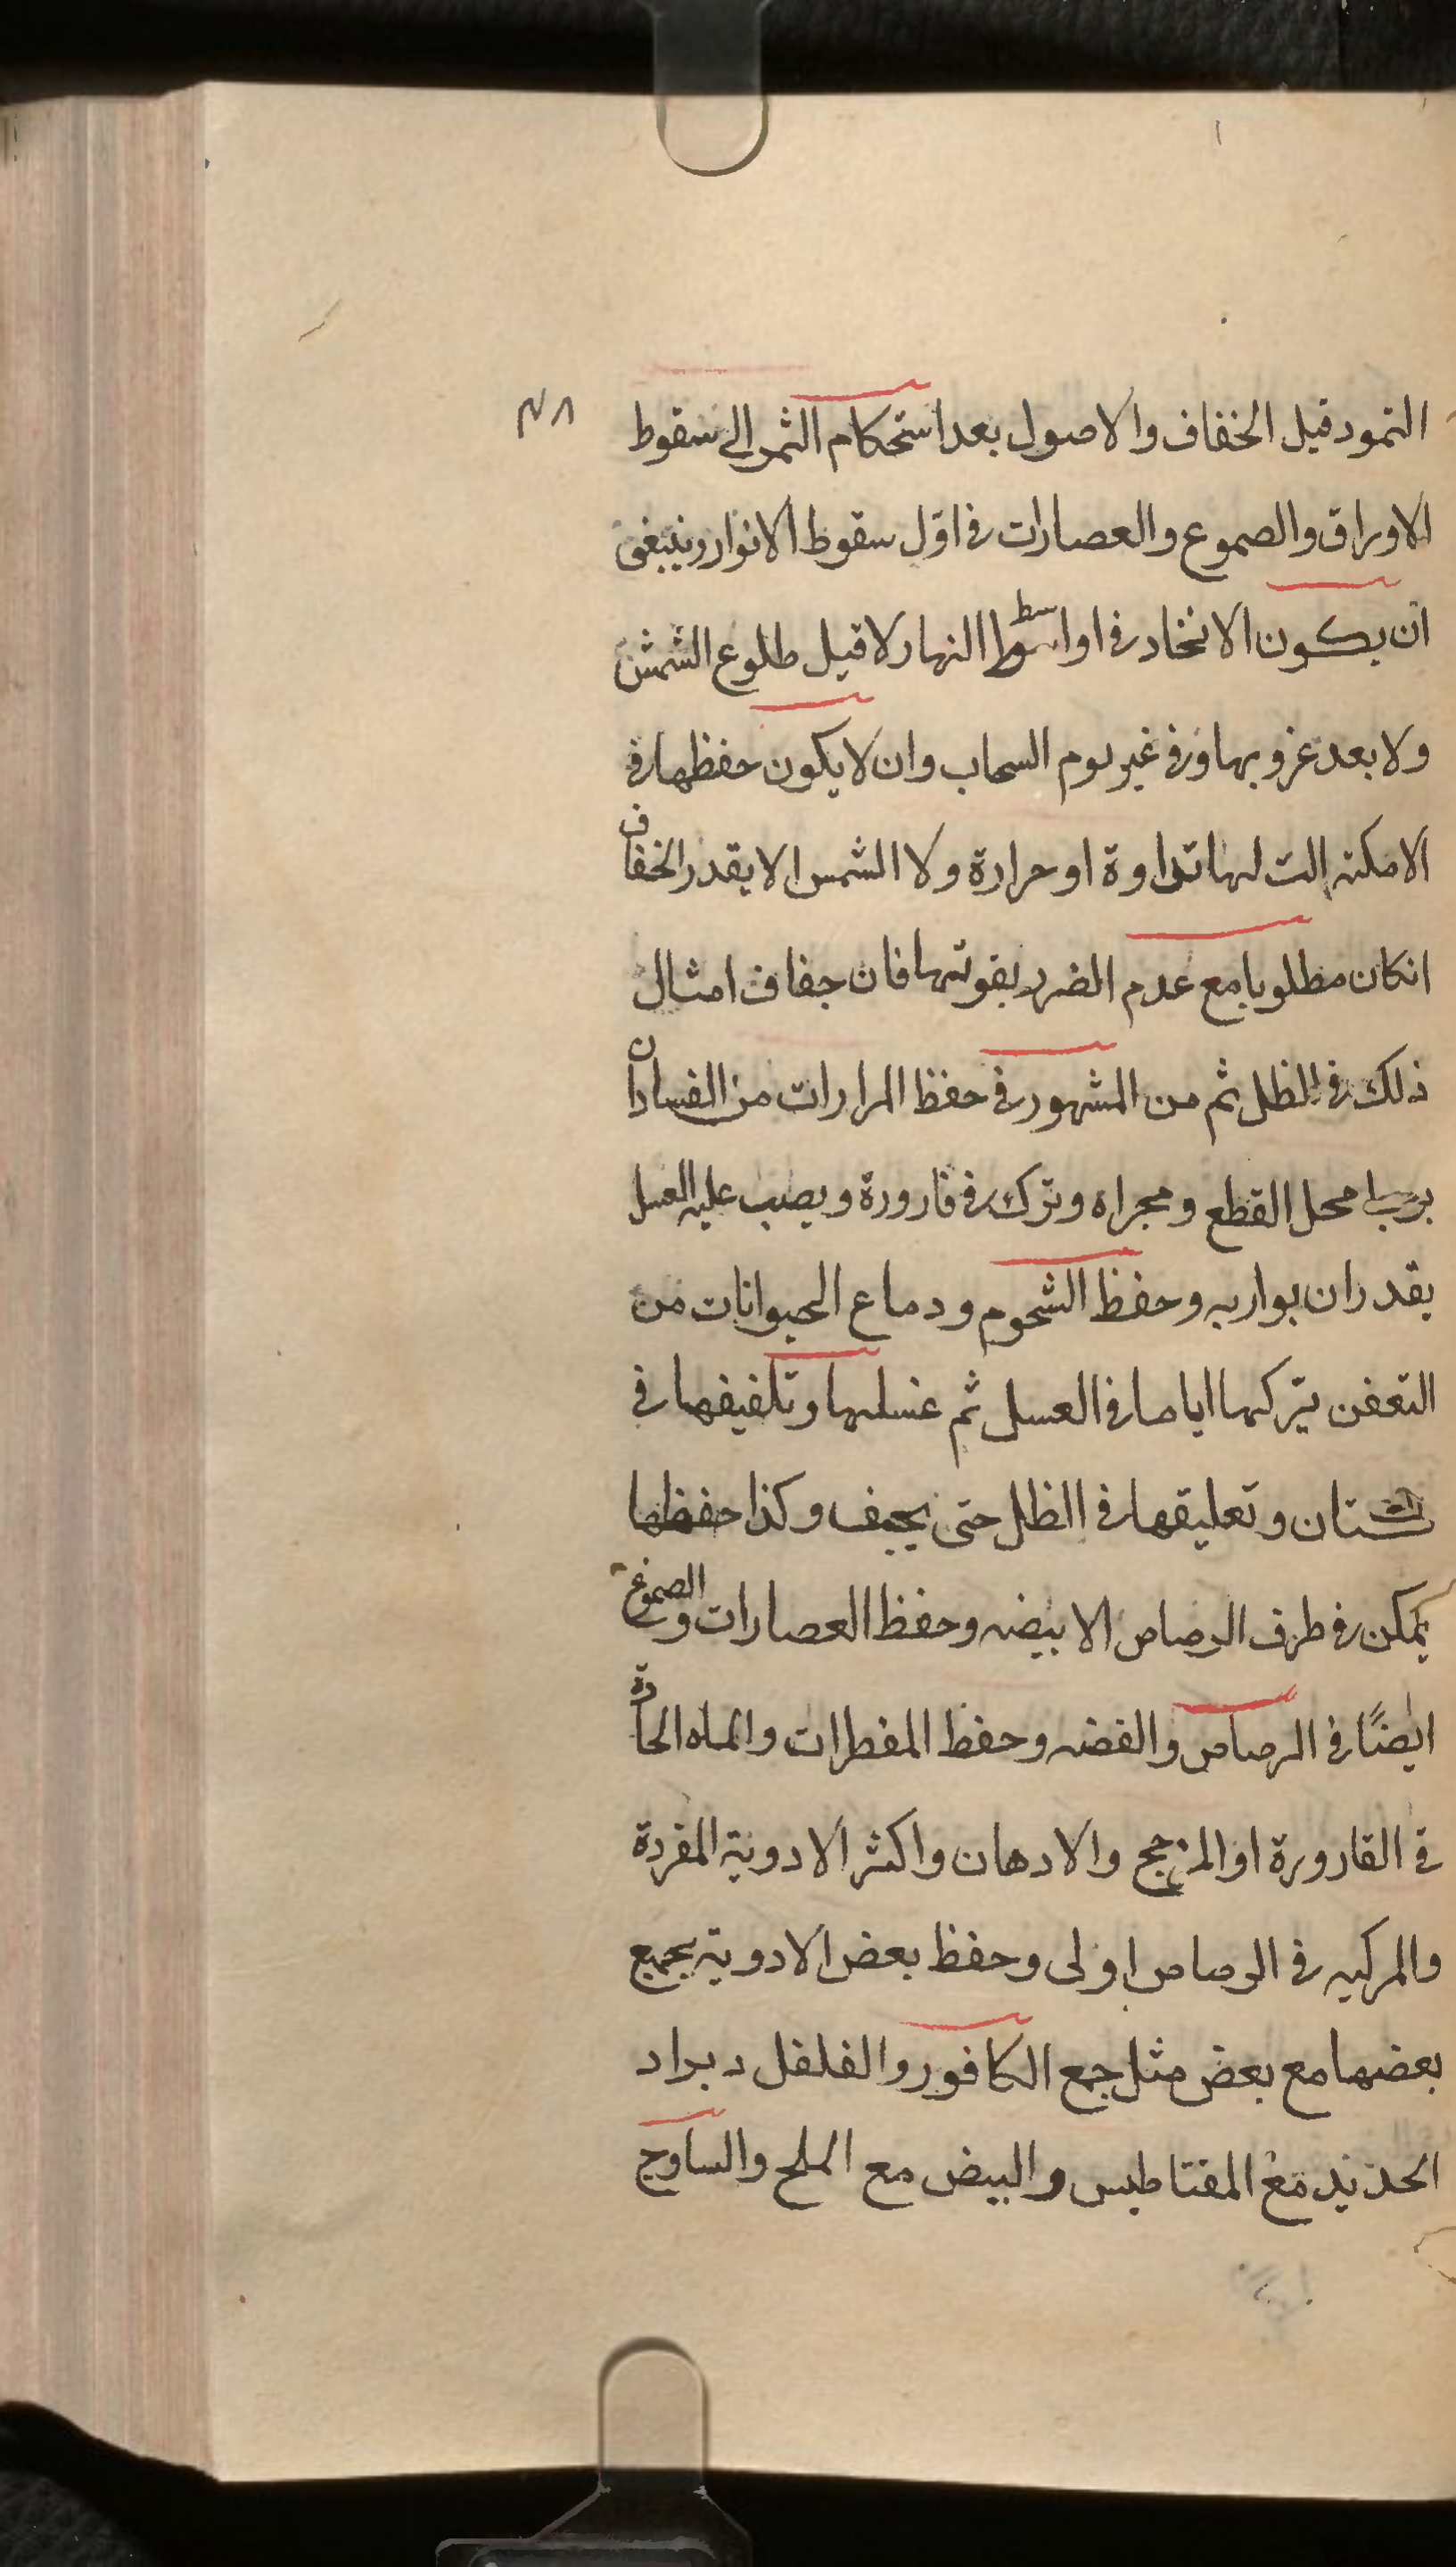 النمود قبل الخفاف والاصول بعد استحكام الثمر الى سقوط
الاوراق والصموع والعصارات فى اوّل سقوط الانوار وينبغى
ان يكون الاتخاد فى اواسط النهار لا قبل طلوع الشمش
ولا بعد غروبها وفى غير يوم السحاب وان لا يكون حفظها فى
الامكنه التى لها نداوة او حرارة ولا الشمس الا بقدر الخفاف
انكان مطلوبا مع عدم الضرر بقوتها فان جفاف امثال
ذلك فى الظل ثم من المشهور فى حفظ المرارات من الفساد ان
يربط محل القطع ومجراه وترك فى قارورة ويصب عليه العسل
بقدر ان يواريه وحفظ الشحوم ودماع الحيوانات من
التعفن بتركها اياما فى العسل ثم غسلها وتلفيفها فى
كتان وتعليقها فى الظل حتى يجف وكذا حفظها
يمكن فى ظرف الرصاص الابيضه وحفظ العصارات والصموغ
ايضًا فى الرصاص والفضه وحفظ المقطرات والمياه الحادة
فى القارورة او المزجج والادهان واكثر الادوية المفردة
والمركبه فى الرصاص اولى وحفظ بعض الادوية بجميع
بعضها مع بعض مثل جمع الكافور والفلفل د براد
الحديد مع المقناطيس والبيض مع الملح والساوج